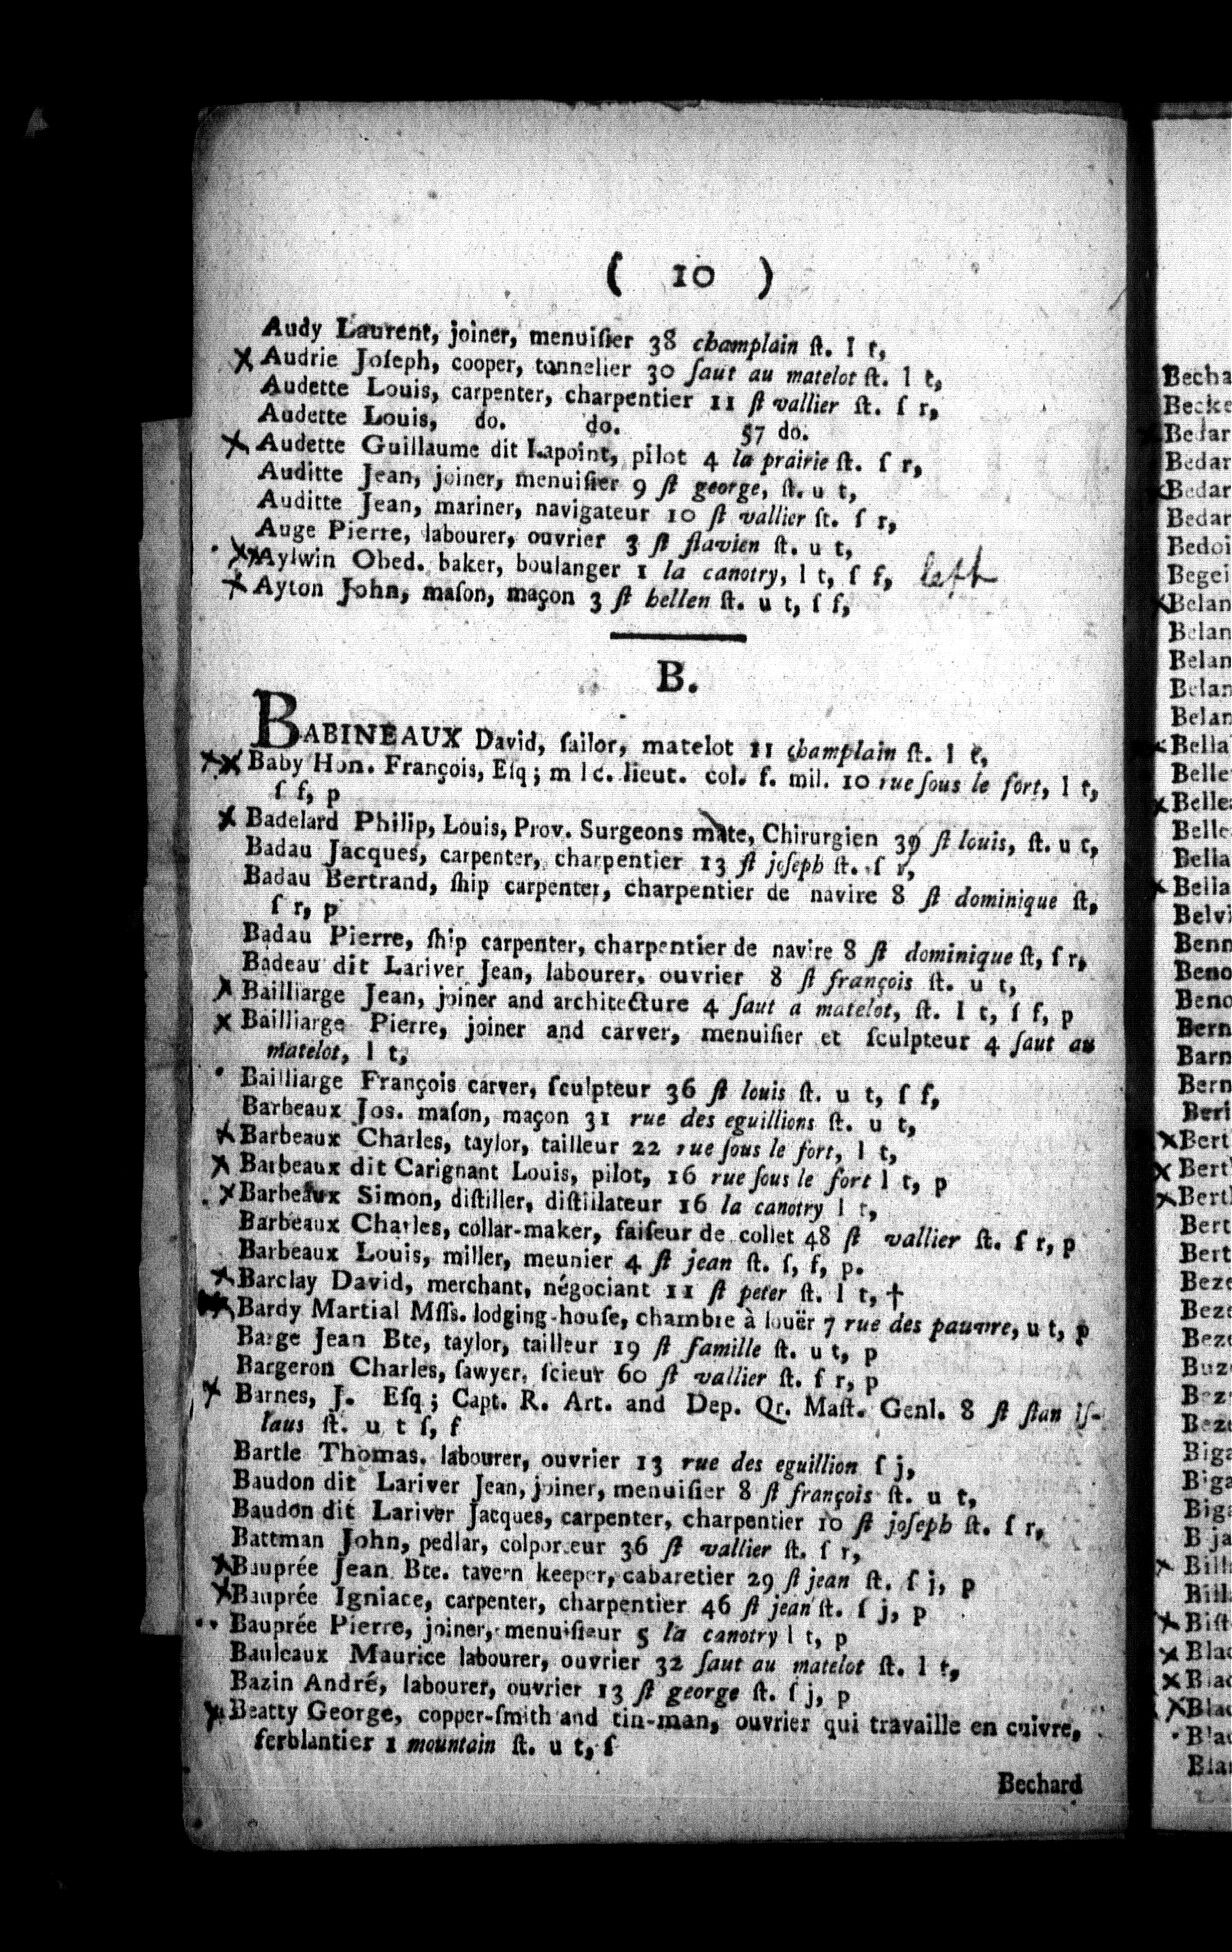 ( 10 )
Audy Laurent, joiner, menuiſier 38 champlain ſt. l t,
Audrie Joſeph, cooper, tonnelier 30 ſaut au matelot ſt. l t,
Audette Louis, carpenter, charpentier 11 ſt vallier ſt. ſ r,
Audette Louis, do. do. 57 do.
Audette Guillaume dit Lapoint, pilot 4 la prairie ſt. ſ r,
Auditte Jean, joiner, menuiſier 9 ſt george, ſt. u t,
Auditte Jean, mariner, navigateur 10 ſt vallier ſt. ſ r,
Auge Pierre, labourer, ouvrier 3 ſt flavien ſt. u t,
Aylwin Obed. baker, boulanger 1 la canotry, l t, ſ ſ, left
Ayton John, maſon, maçon 3 ſt hellen ſt. u t, ſ ſ,
B.
BABINEAUX David, ſailor, matelot 11 champlain ſt. l t,
Baby Hon. François, Eſq; m l c. lieut. col. f. mil. 10 rue ſous le fort, l t,
ſ f, p
Badelard Philip, Louis, Prov. Surgeons mate, Chirurgien 39 ſt louis, ſt. u t,
Badau Jacques, carpenter, charpentier 13 ſt joſeph ſt. ſ r,
Badau Bertrand, ſhip carpenter, charpentier de navire 8 ſt dominique ſt,
ſ r, p
Badau Pierre, ſhip carpenter, charpentier de navire 8 ſt dominique ſt, ſ r,
Badeau dit Lariver Jean, labourer, ouvrier 8 ſt françois ſt. u t,
Bailliarge Jean, joiner and architecture 4 ſaut a matelot, ſt. l t, ſ f, p
Bailliarge Pierre, joiner and carver, menuiſier et ſculpteur 4 ſaut au
matelot, l t,
Bailliarge François carver, ſculpteur 36 ſt louis ſt. u t, ſ f,
Barbeaux Jos. maſon, maçon 31 rue des eguillions ſt. u t,
Barbeaux Charles, taylor, tailleur 22 rue ſous le fort, l t,
Barbeaux dit Carignant Louis, pilot, 16 rue ſous le fort l t, p
Barbeaux Simon, diſtiller, diſtillateur 16 la canotry l t,
Barbeaux Charles, collar-maker, faiſeur de collet 48 ſt vallier ſt. ſ r, p
Barbeaux Louis, miller, meunier 4 ſt jean ſt. ſ, f, p.
Barclay David, merchant, négociant 11 ſt peter ſt. l t, †
Bardy Martial Mſſs. lodging-houſe, chambre à louër 7 rue des pauvre, u t, p
Barge Jean Bte, taylor, tailleur 19 ſt famille ſt. u t, p
Bargeron Charles, ſawyer, ſcieur 60 ſt vallier ſt. ſ r, p
Barnes, J. Eſq; Capt. R. Art. and Dep. Qr. Maſt. Genl. 8 ſt ſtan iſ-
laus ſt. u t ſ, f
Bartle Thomas. labourer, ouvrier 13 rue des eguillion ſ j,
Baudon dit Lariver Jean, joiner, menuiſier 8 ſt françois ſt. u t,
Baudon dit Lariver Jacques, carpenter, charpentier 10 ſt joſeph ſt. ſ r,
Battman John, pedlar, colporteur 36 ſt vallier ſt. ſ r,
Bauprée Jean Bte. tavern keeper, cabaretier 29 ſt jean ſt. ſ j, p
Bauprée Igniace, carpenter, charpentier 46 ſt jean ſt. ſ j, p
Bauprée Pierre, joiner, menuiſieur 5 la canotry l t, p
Bauleaux Maurice labourer, ouvrier 32 ſaut au matelot ſt. l t,
Bazin André, labourer, ouvrier 13 ſt george ſt. ſ j, p
Beatty George, copper-ſmith and tin-man, ouvrier qui travaille en cuivre,
ferblantier 1 mountain ſt. u t, ſ
Bechard
Becha
Becke
Bedar
Bedar
Bedar
Bedar
Bedoi
Begei
Belan
Belan
Belan
Belan
Belan
Bella
Belle
Belle
Belle
Bella
Bella
Belvi
Benn
Beno
Beno
Bern
Barn
Bern
Beri
Bert
Bert
Bert
Bert
Bert
Beze
Beze
Beze
Buz
Bez
Beze
Biga
Biga
Big
Bja
Bill
Bill
Biſt
Blac
Blac
Blac
Blac
Blan